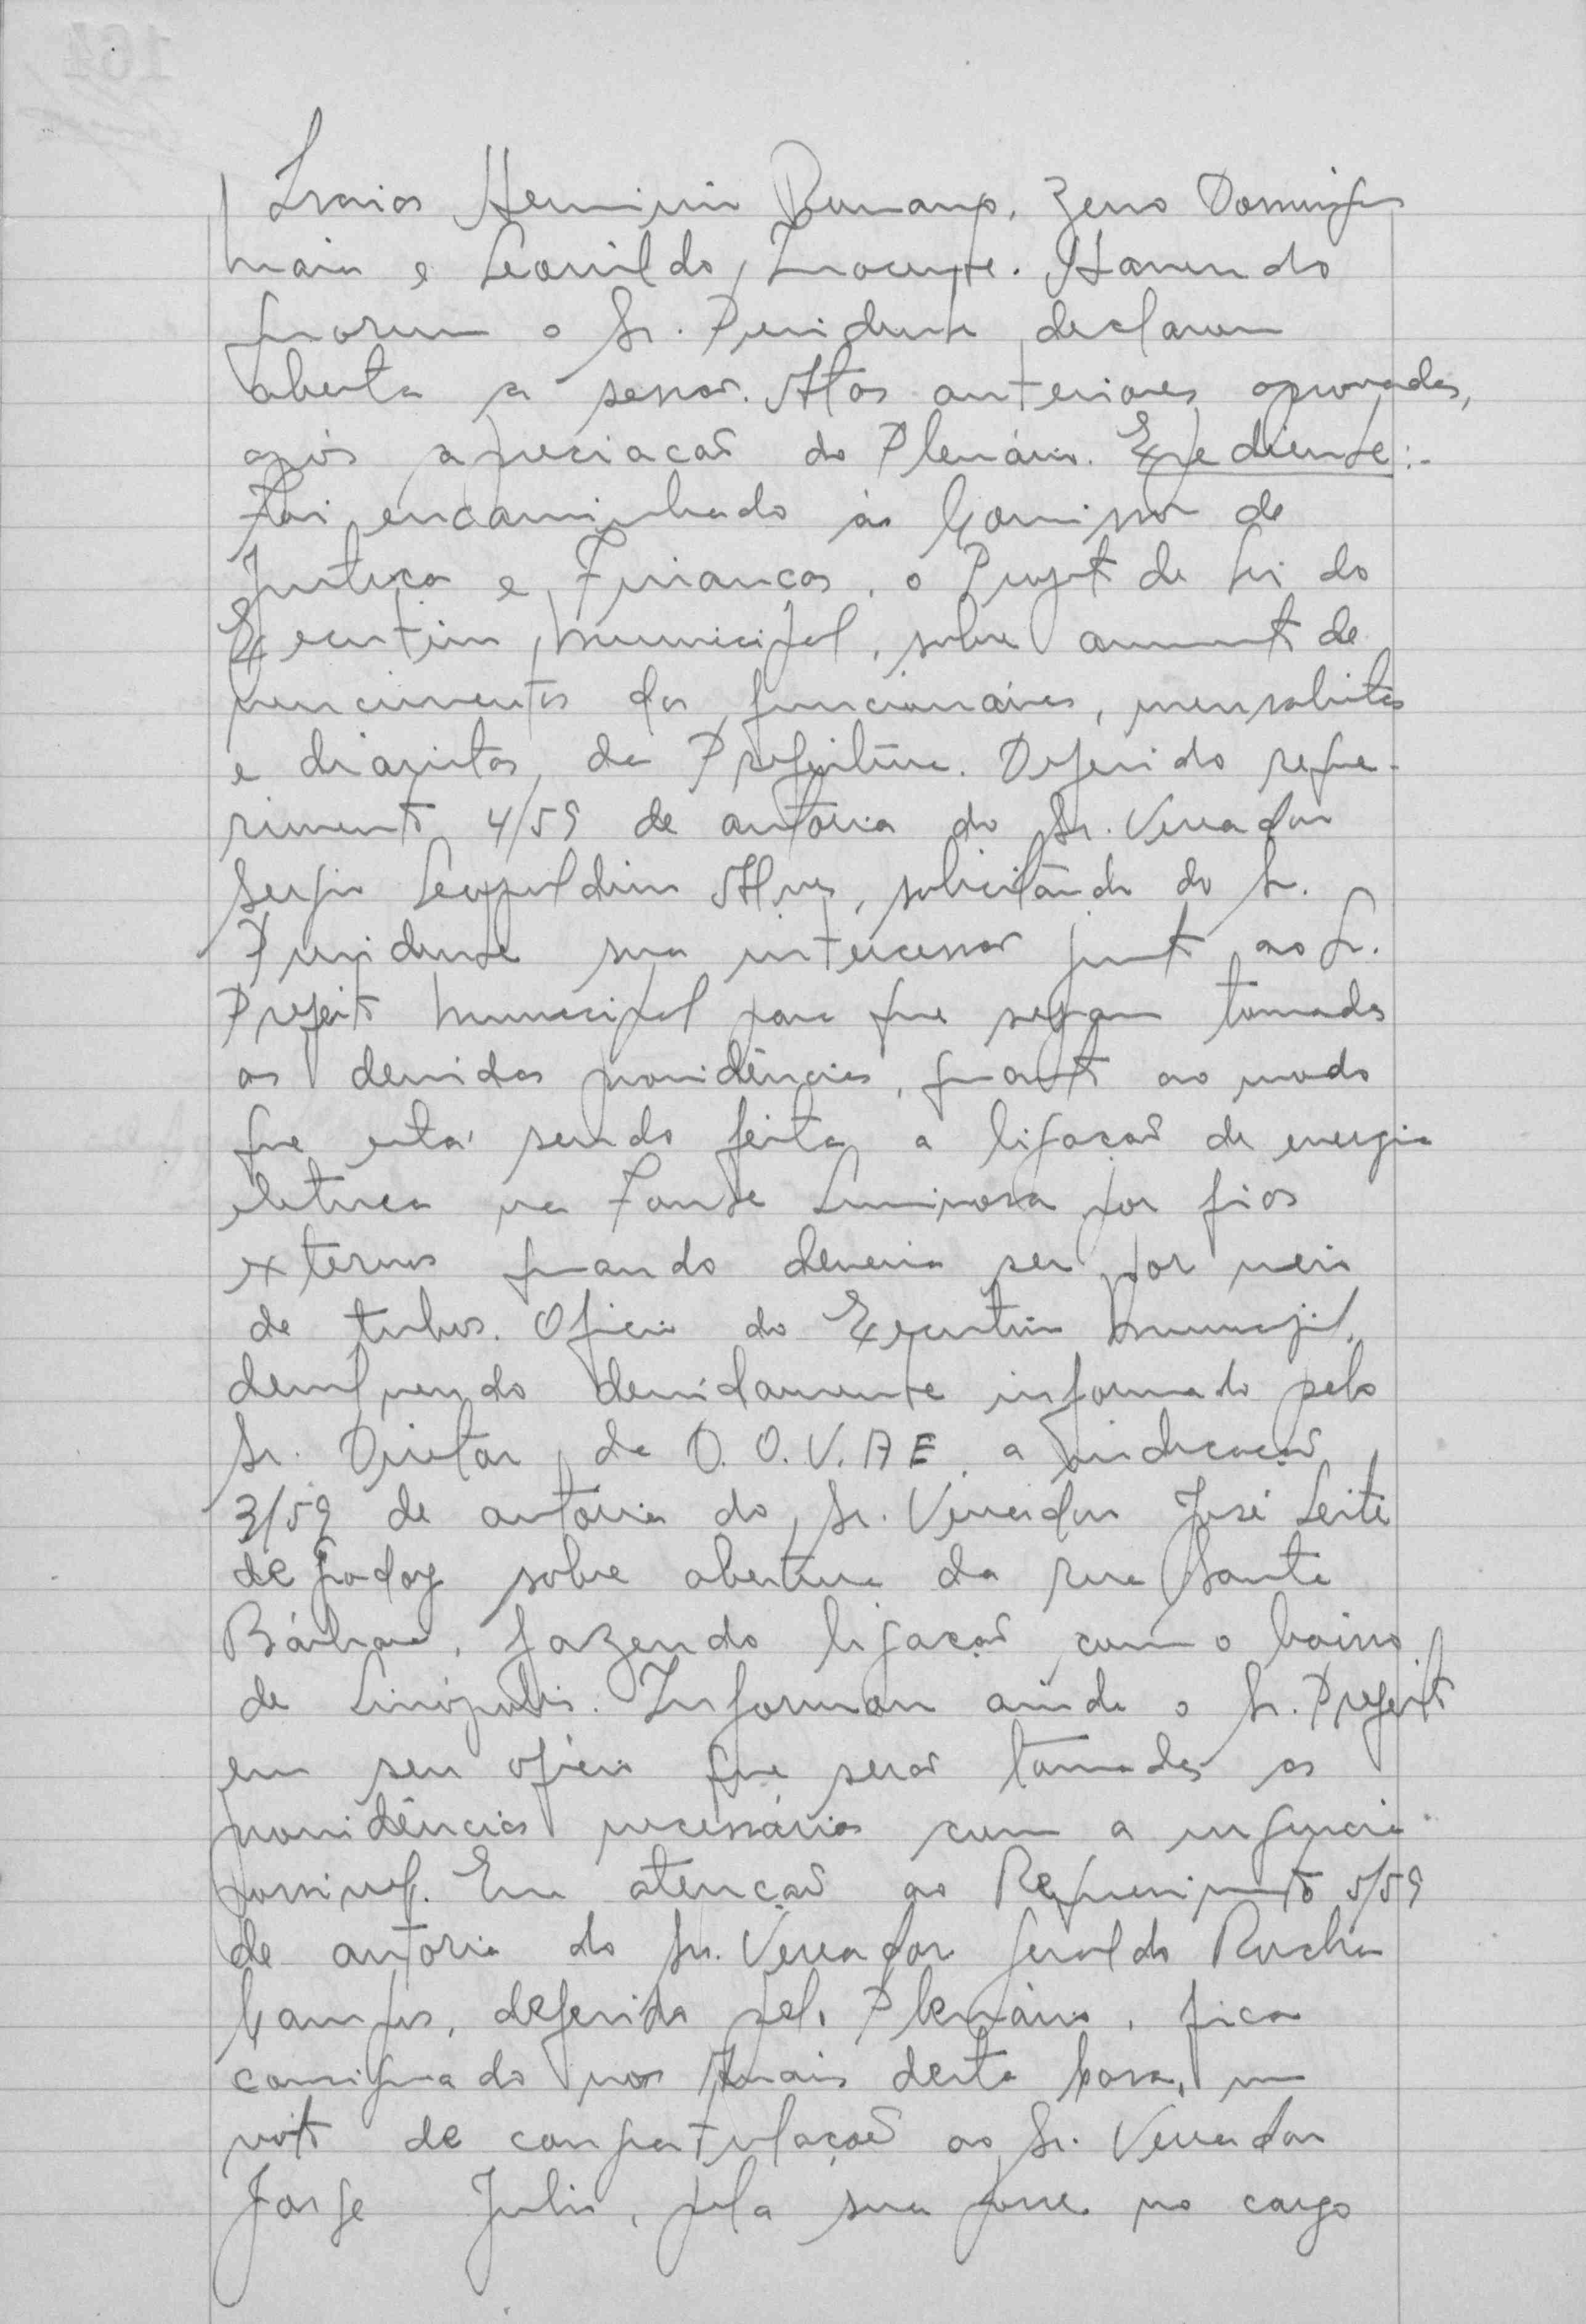 Isaias Herminio Romano, Zeno Domingos
Maia e Leonildo Inocente. Havendo
quorum o Sr. Presidente declarou
aberta a sessão. Atas anteriores aprovadas,
após apreciação do Plenário. Expediente:-
Foi encaminhado às Comissão de
Justiça e Finanças, o Projeto de Lei do
Executivo Municipal, sobre aumento de
vencimentos dos funcionários, mensalistas
e diaristas, da Prefeitura. Deferido reque-
rimento 4/59 de autoria do Sr. Vereador
Sergio Leopoldino Alves, solicitando do Sr.
Presidente sua intercessão junto ao Sr.
Prefeito Municipal para que sejam tomadas
as devidas providências, quanto ao modo
que está sendo feita a ligação de energia
eletrica na Fonte Luminosa por fios
externos quando deveria ser por meio
de tubos. Oficio do Executivo Municipal,
devolvendo devidamente informado pelo
Sr. Diretor da D.O.V.A E, a indicação
3/59 de autoria do Sr. Vereador José Leite
de Godoy sobre abertura da rua Santa
Bárbara, fazendo ligação com o bairro
de Linópolis. Informou ainda o Sr. Prefeito
em seu oficio que serão tomadas as
providências necessárias com a urgencia
possivel. Em atenção ao Requerimento 5/59
de autoria do Sr. Vereador Geraldo Rocha
Campos, deferido pelo Plenário, fica
consignado nos Anais desta Casa, um
voto de congratulação ao Sr. Vereador
Jorge Julio, pela sua posse no cargo